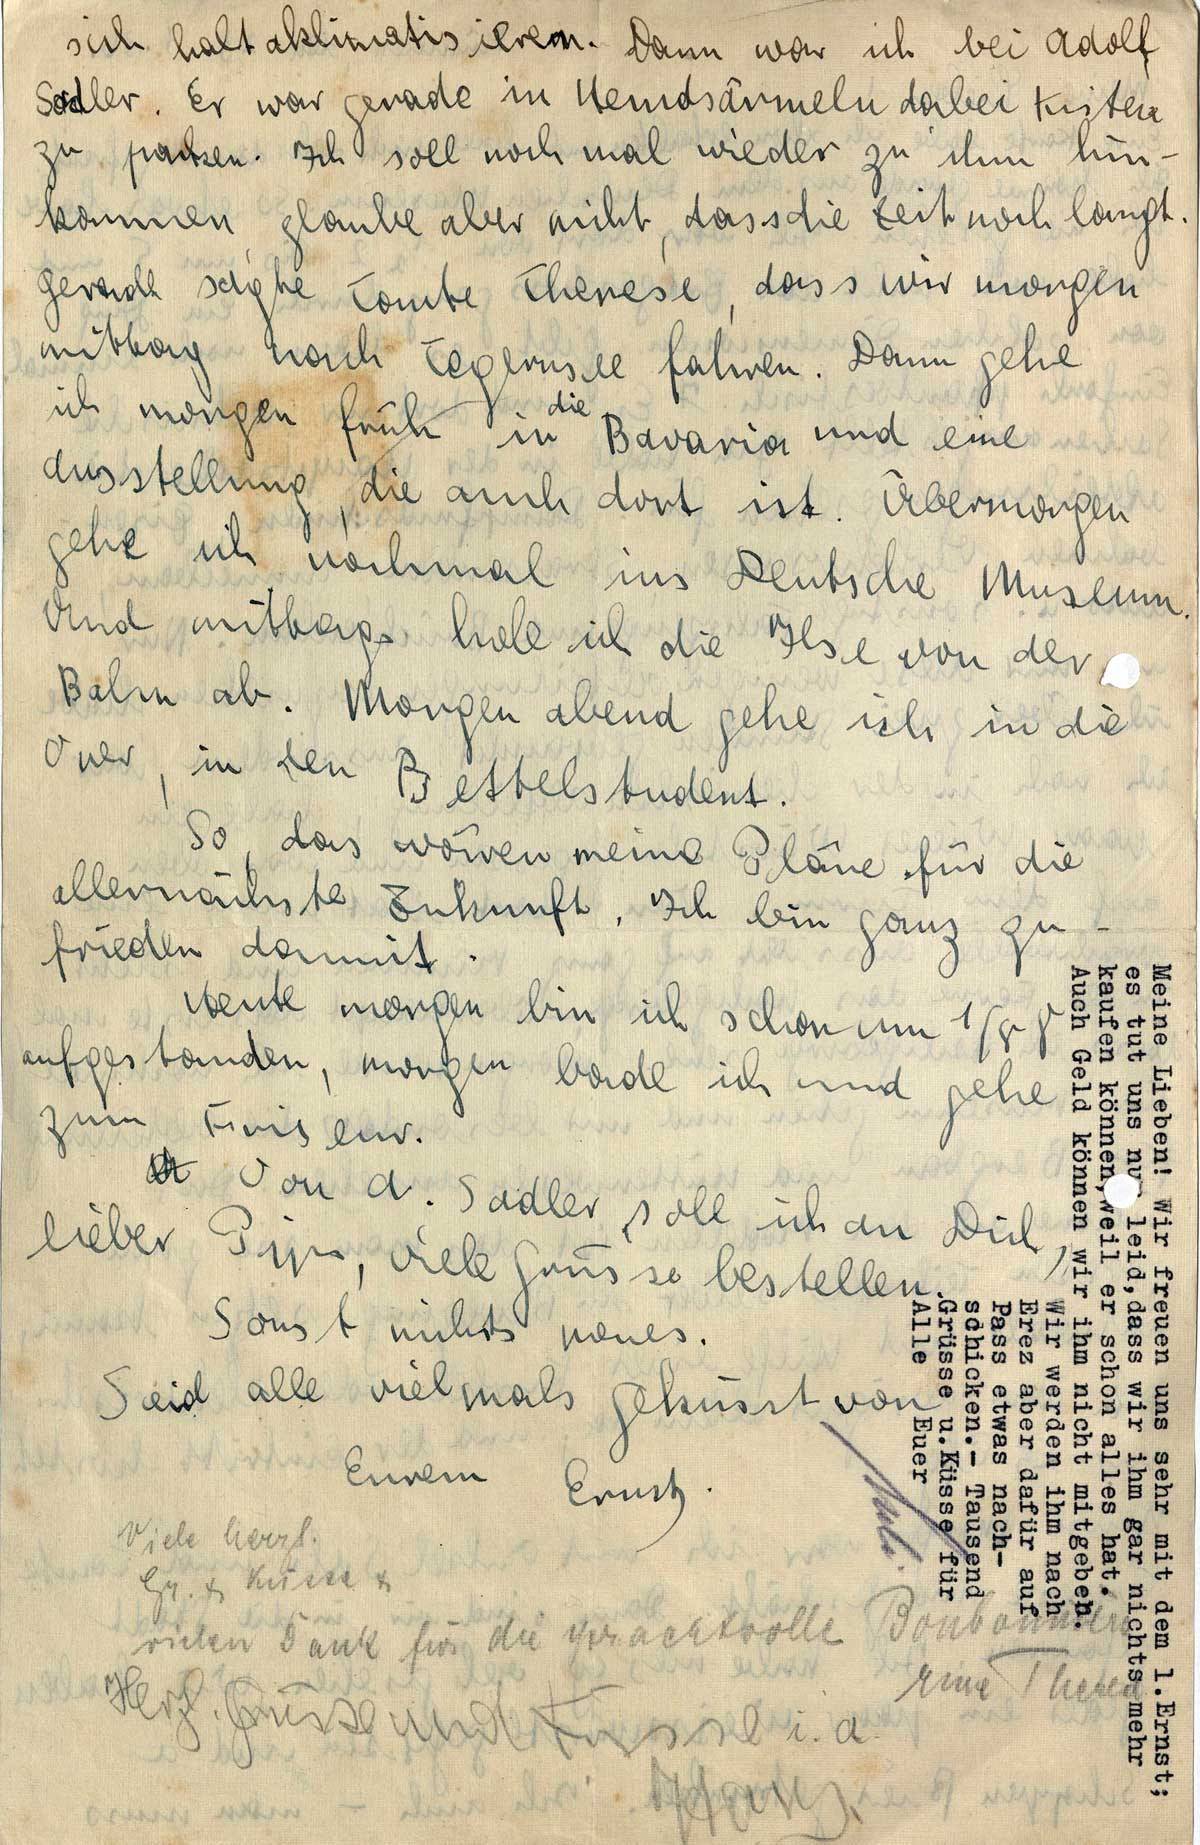 sich halt aklimatisieren. Dann war ich bei Adolf
Sadler. Er war gerade in Hemdsärmeln dabei Kisten
zu packen. Ich soll noch mal wieder zu ihm hin-
kommen, glaube aber nicht, dass die Zeit noch langt.
Gerade sagte Tante Therese, dass wir morgen
mittag nach Tegernsee fahren. Dann gehe
ich morgen früh in die Bavaria und eine
Ausstellung, die auch dort ist. Übermorgen
gehe ich nochmal ins Deutsche Museum.
Und mittags hole ich die Ilse von der
Bahn ab. Morgen abend gehe ich in die
Oper, in den Bettelstudent.
So, das wären meine Pläne für die
allernächste Zukunft. Ich bin ganz zu-
frieden damit.
Heute morgen bin ich schon um 1/8
aufgestanden, morgen bade ich und gehe
zum Friseur.
Von A. Sadler soll ich an Dich,
lieber Pips, viele Grüsse bestellen.
Sonst nichts neues.
Seid alle vielmals geküsst von
Eurem Ernst.
Viele herzl.
Gr. & Küsse &
vielen Dank für die prachtvolle Bonbonniere
Eure Therese
Herzl. Grüsse und Küsse i. a.
Meine Lieben! Wir freuen uns sehr mit dem l.Ernst;
es tut uns nur leid,dass wir ihm gar nichts mehr
kaufen können,weil er schon alles hat.
Auch Geld können wir ihm nicht mitgeben.
Wir werden ihm nach
Erez aber dafür auf
Pass etwas nach-
schicken.- Tausend
Grüsse u.Küsse für
Alle Euer